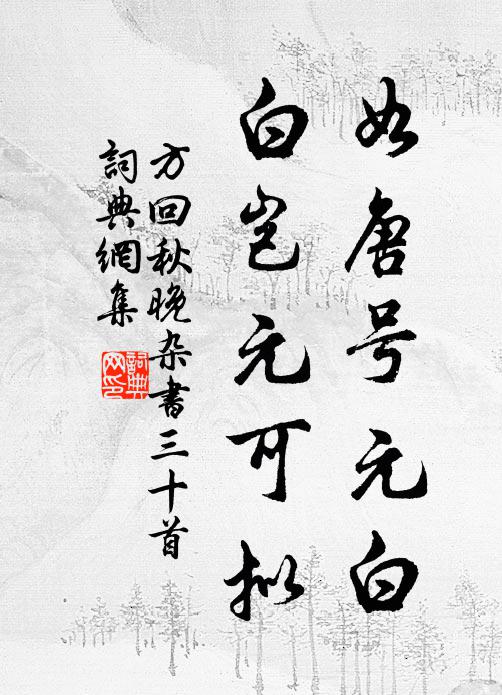 如唐号元白
白岂元可拟
方回秋晚杂書三十首
詞典網集
詞典网印